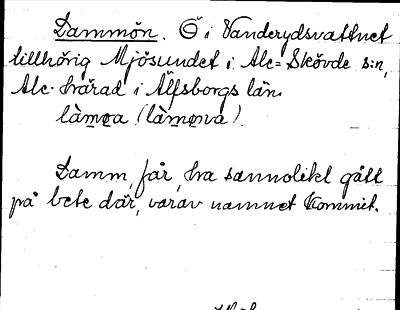 Lammön. Ö i Vanderydsvattnet
tillhörig Mjösundet i Ale-Skövde s:n,
Ale-härad i Älfsborgs län.
Lamm, får, ha sannolikt gått
på bete där, varav namnet kommit.